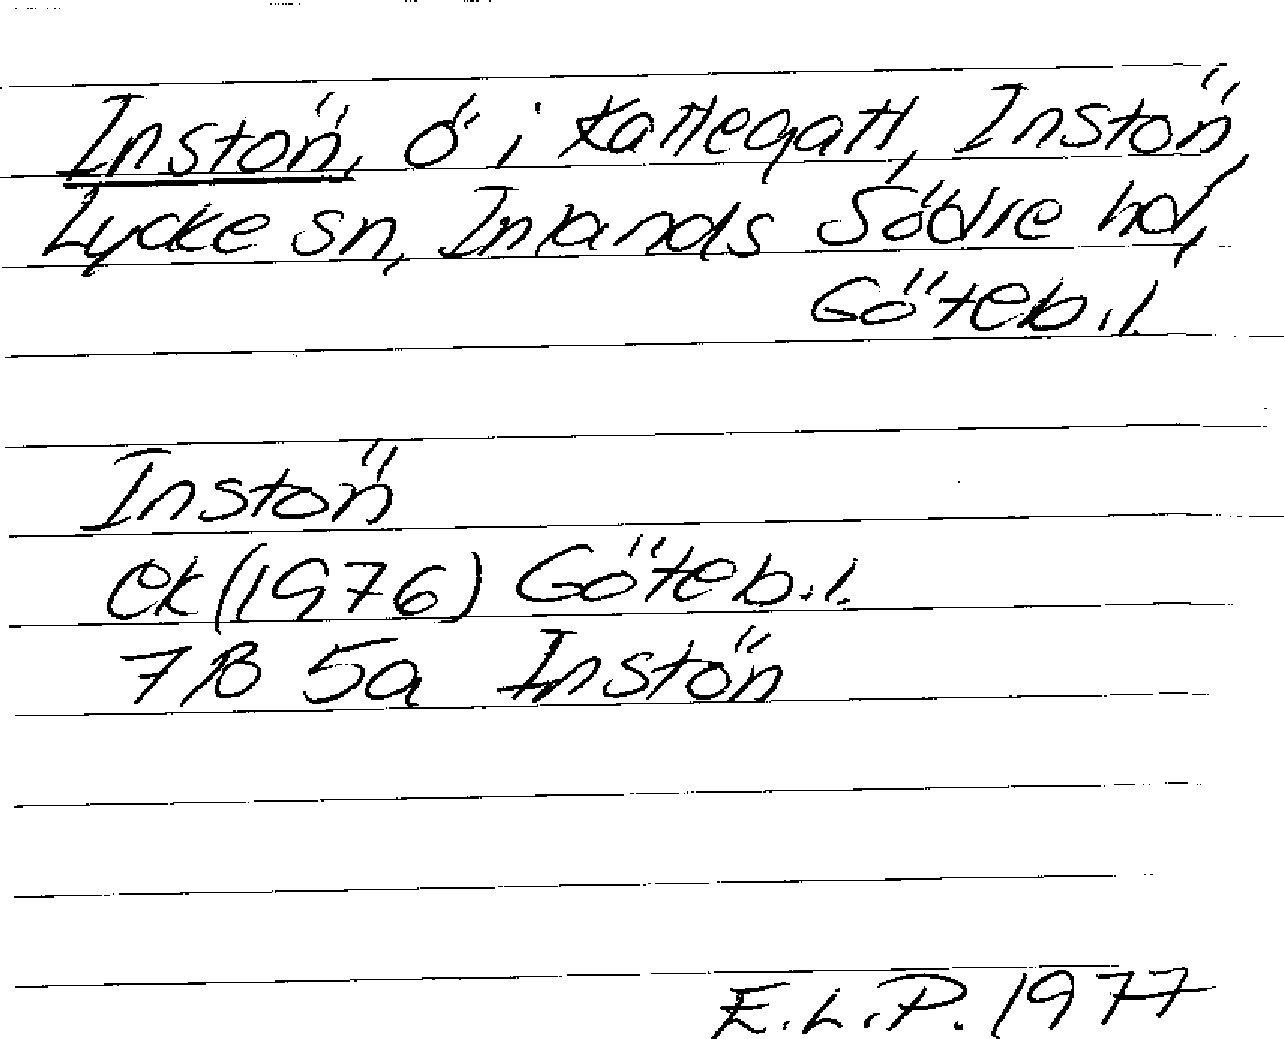 Instön, ö i Kattegatt, Instön,
Lycke sn, Inlands Södre hd,
Göteb.l.
Instön
ek(1976) Göteb.l.
7B 5a Instön
E.L.P. 1977